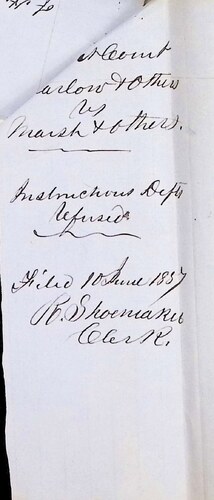 t Court
arlow & Others
vs
Marsh & others.
Instructions Defts
refused
Filed 10 June 1857
R. Shoemaker
Clerk.